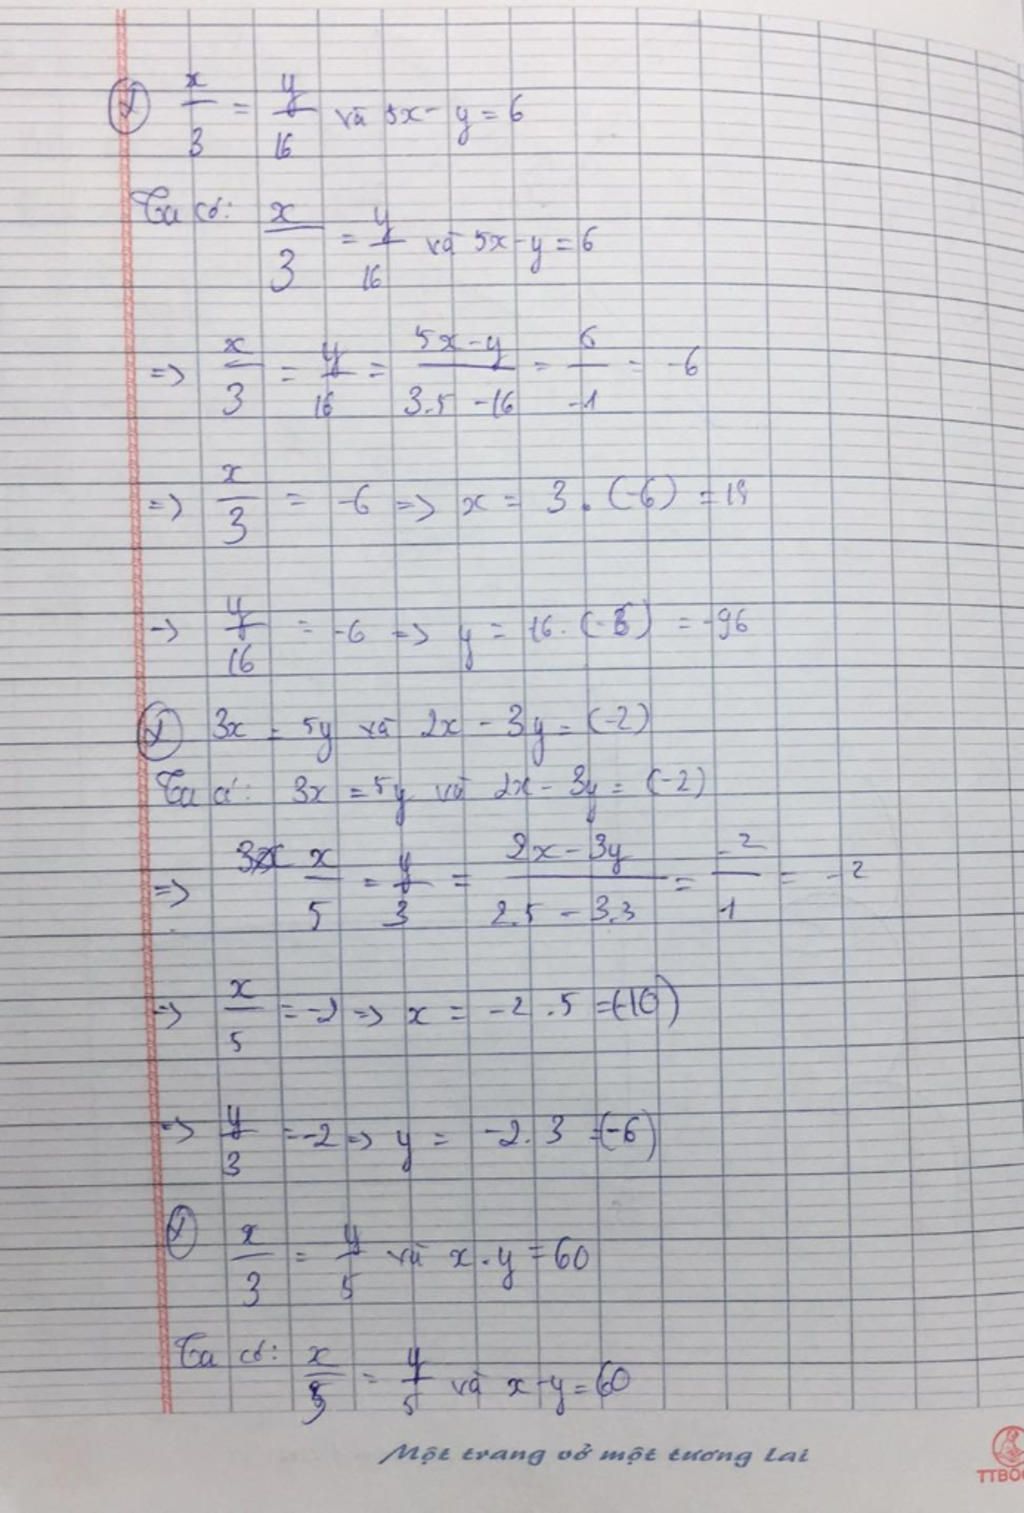 x/3 = y/16 và 5x - y = 6
Ta có: x/3 = y/16 và 5x - y = 6
=> x/3 = y/16 = 5x - y/3.5 - 16 = 6/-1 = -6
=> x/3 = -6 => x = 3 . (-6) = 18
-> y/16 = -6 => y = 16. (-6) = -96
3x = 5y và 2x - 3y = (-2)
Ta có: 3x = 5y và 2x - 3y = (-2)
=> x/5 = y/3 = 2x - 3y/2.5 - 3.3 = -2/1 = -2
=> x/5 = -2 => x = -2 .5 = (-10)
=> y/3 = -2 => y = -2. 3 = (-6)
x/3 = y/5 và x . y = 60
Ta có: x/3 = y/5 và x - y = 60
Một trang vở một tương lai